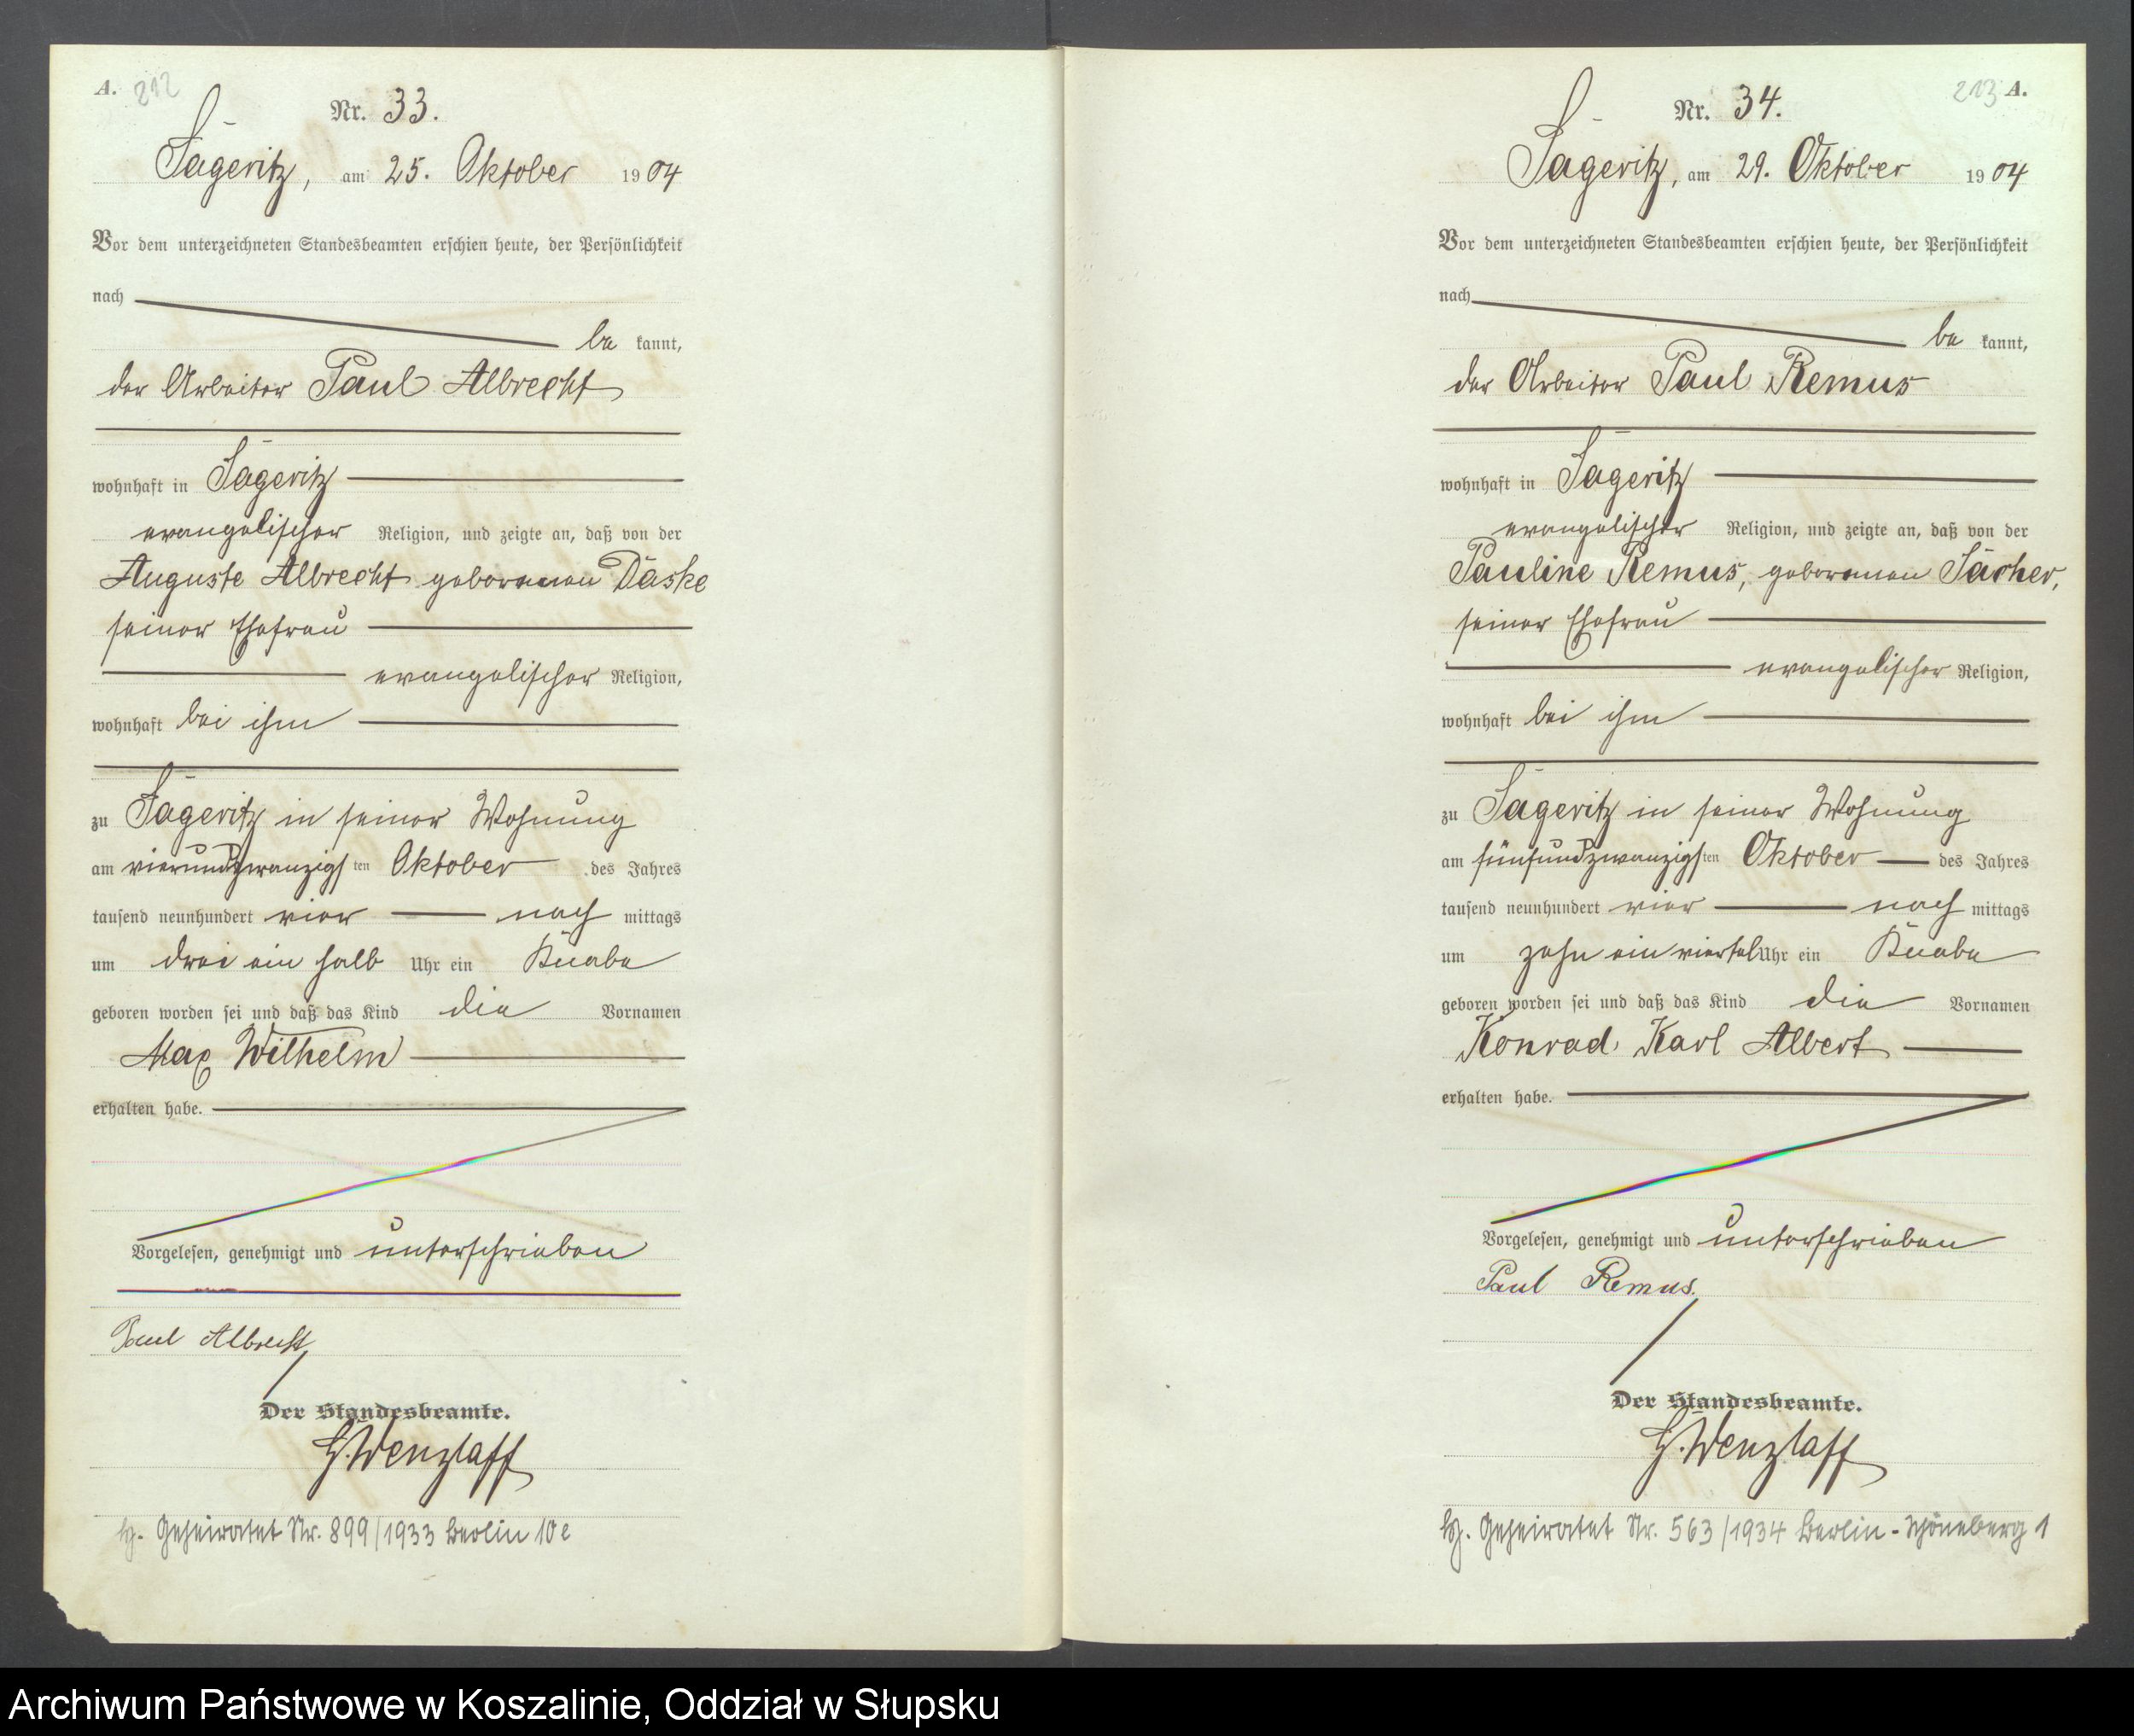 A. 212
Nr. 33.
Sageritz, am 25. Oktober 1904
Vor dem unterzeichneten Standesbeamten erschien heute, der Persönlichkeit
nach
be kannt,
der Arbeiter Paul Albrecht
wohnhaft in Sageritz
evangelischer Religion, und zeigte an, daß von der
Auguste Albrecht geborenen Däske
seiner Ehefrau
evangelischer Religion,
wohnhaft bei ihm
zu Sageritz in seiner Wohnung
am vierundzwanzigsten Oktober des Jahres
tausend neunhundert vier nach mittags
um drei ein halb Uhr ein Knabe
geboren worden sei und daß das Kind die Vornamen
Max Wilhelm
erhalten habe.
Vorgelesen, genehmigt und unterschrieben
Paul Albrecht
Der Standesbeamte.
G. Wenzlaff
Geheiratet Nr. 899/1933 Berlin 10e
213 A.
Nr. 34.
Sageritz, am 29. Oktober 1904
Vor dem unterzeichneten Standesbeamten erschien heute, der Persönlichkeit
nach
be kannt,
der Arbeiter Paul Remus
wohnhaft in Sageritz
evangelischer Religion, und zeigte an, daß von der
Pauline Remus, geborenen
seiner Ehefrau
evangelischer Religion,
wohnhaft bei ihm
zu Sageritz in seiner Wohnung
am fünfundzwanzigsten Oktober des Jahres
tausend neunhundert vier nach mittags
um zehn ein viertel Uhr ein Knabe
geboren worden sei und daß das Kind die Vornamen
Konrad Karl Albert
erhalten habe.
Vorgelesen, genehmigt und unterschrieben
Paul Remus.
Der Standesbeamte.
G. Wenzlaff
Geheiratet Nr. 563/1934 Berlin-Schöneberg 1
Archiwum Państwowe w Koszalinie, Oddział w Słupsku